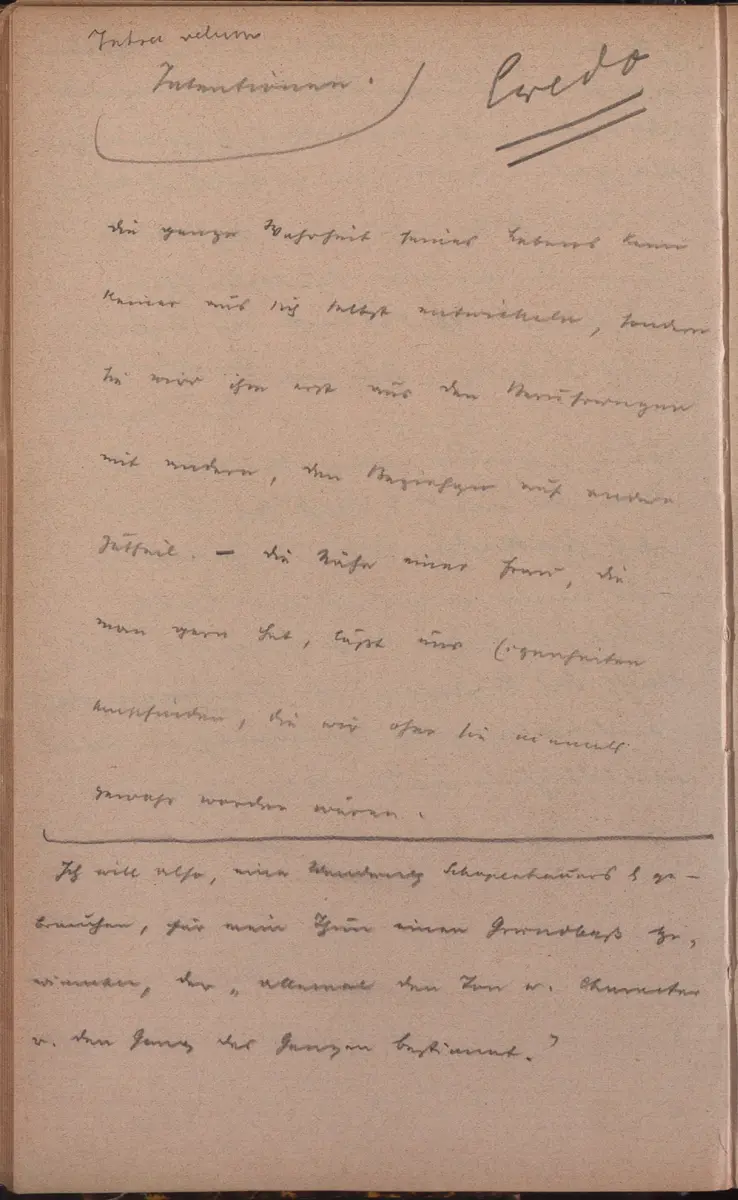 Intra velum
Intentionen.
Credo
Die ganze Wahrheit seines Lebens kann
keiner aus sich selbst entwickeln, sondern
sie wird ihm erst aus den
mit andern, den Beziehgen auf andere
Zutheil. — Die Nähe einer Frau, die
man gern hat, läßt uns Eigenheiten
die wir ohne sie niemals
gewahr worden wären.
Ich will also, eine Wendung Schopenhauers z ge-
brauchen, für mein Thun einen Grundbaß ge-
winnen, der „allemal den Ton u. Character
u. den Gang des Ganzen bestimmt."